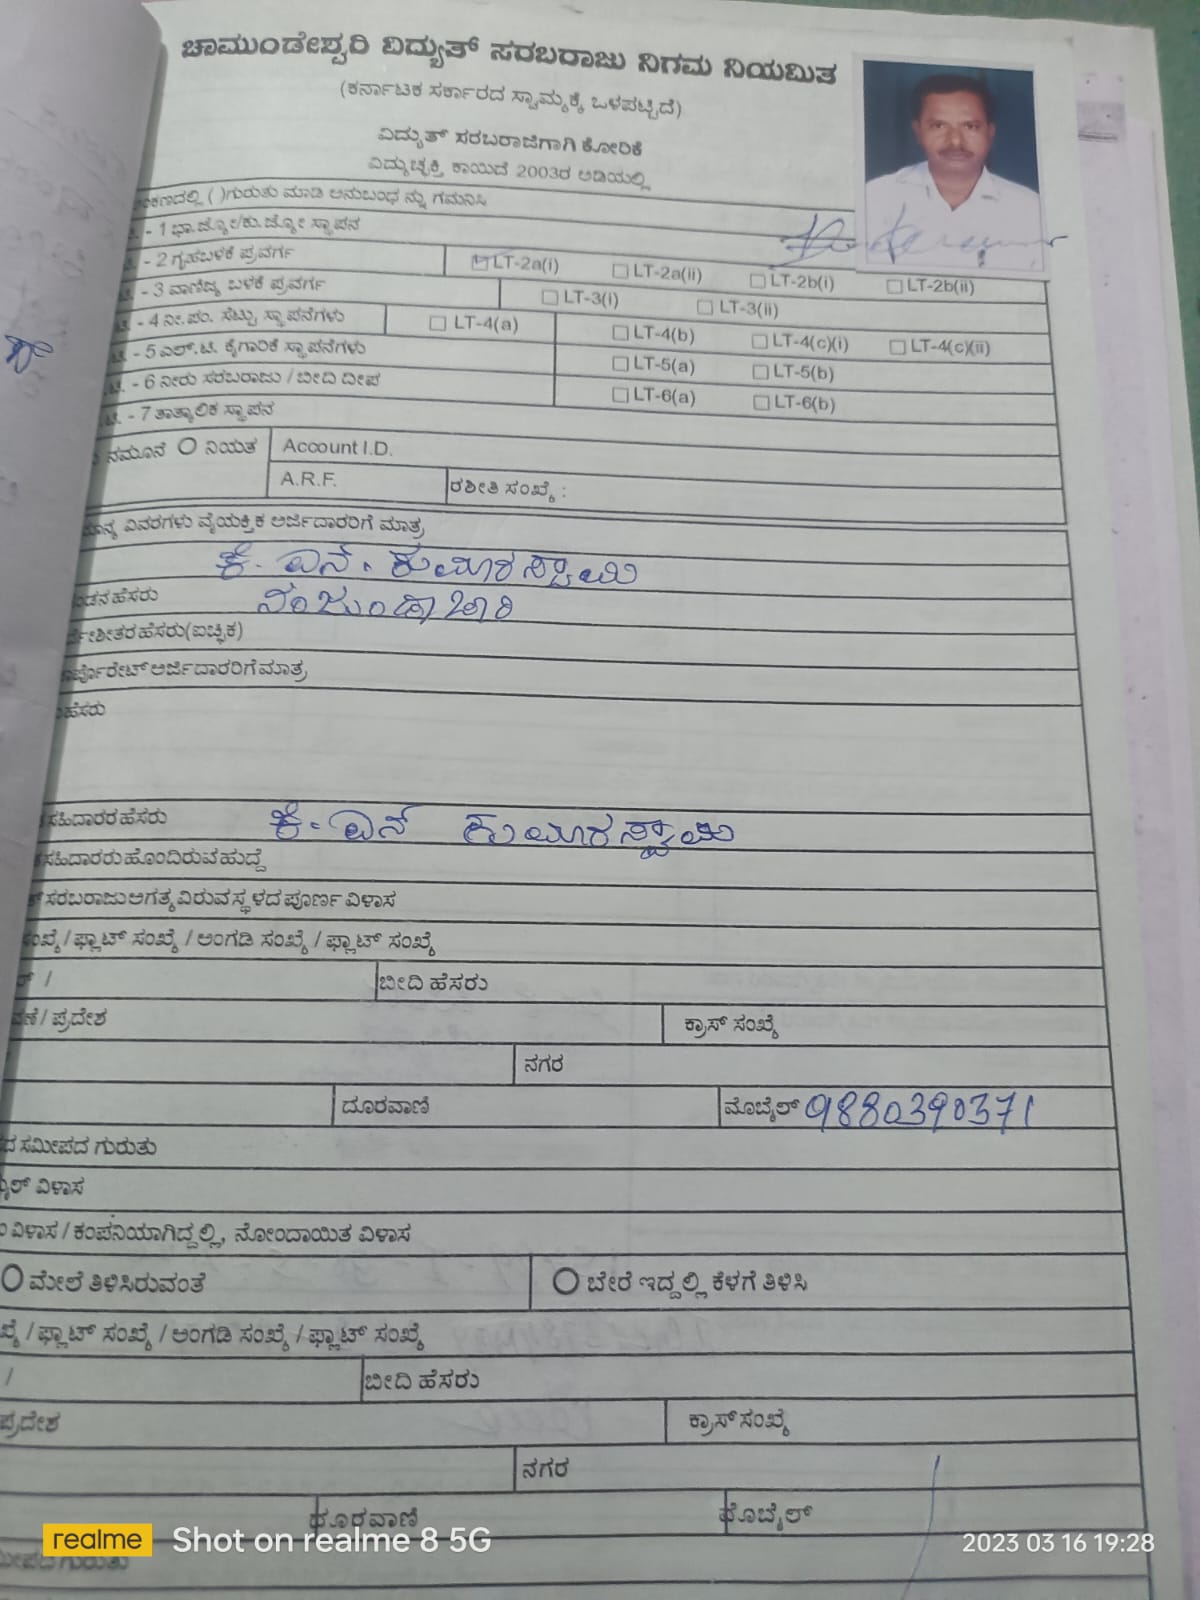 ಚಾಮುಂಡೇಶ್ವರಿ ವಿದ್ಯುತ್ ಸರಬರಾಜು ನಿಗಮ ನಿಯಮಿತ
(ಕರ್ನಾಟಕ ಸರ್ಕಾರದ ಸ್ವಾಮ್ಯಕ್ಕೆ ಒಳಪಟ್ಟಿದೆ)
ವಿದ್ಯುತ್ ಸರಬರಾಜಿಗಾಗಿ ಕೋರಿಕೆ
ವಿದ್ಯುಚ್ಛಕ್ತಿ ಕಾಯಿದೆ 2003ರ ಅಡಿಯಲ್ಲಿ
( )ಗುರುತು ಮಾಡಿ ಅನುಬಂಧ ನ್ನು ಗಮನಿಸಿ
- 1 ಭಾ.ಜ್ಯೋ/ಕು.ಜ್ಯೋ ಸ್ಥಾಪನ
- 2 ಗೃಹಬಳಕೆ ಪ್ರವರ್ಗ LT-2a(i) LT-2a(ii) LT-2b(i) LT-2b(ii)
- 3 ವಾಣಿಜ್ಯ ಬಳಕೆ ಪ್ರವರ್ಗ LT-3(i) LT-3(ii)
- 4 ನೀ.ಪಂ. ಸೆಟ್ಟು ಸ್ಥಾಪನೆಗಳು LT-4(a) LT-4(b) LT-4(c)(i) LT-4(c)(ii)
- 5 ಎಲ್.ಟಿ. ಕೈಗಾರಿಕೆ ಸ್ಥಾಪನೆಗಳು LT-5(a) LT-5(b)
- 6 ನೀರು ಸರಬರಾಜು / ಬೀದಿ ದೀಪ LT-6(a) LT-6(b)
- 7 ತಾತ್ಕಾಲಿಕ ಸ್ಥಾಪನ
ನಮೂನೆ ನಿಯತ Account I.D.
A.R.F. ರಶೀತಿ ಸಂಖ್ಯೆ :
ವಿವರಗಳು ವೈಯಕ್ತಿಕ ಅರ್ಜಿದಾರರಿಗೆ ಮಾತ್ರ
ಕೆ. ಎನ್. ಕುಮಾರಸ್ವಾಮಿ
ಹೆಸರು ನಂಜುಂಡಾಚಾರಿ
ಹೆಸರು(ಐಚ್ಛಿಕ)
ಅರ್ಜಿದಾರರಿಗೆ ಮಾತ್ರ
ಹೆಸರು
ಸಹಿದಾರರ ಹೆಸರು ಕೆ. ಎನ್ ಕುಮಾರಸ್ವಾಮಿ
ಸಹಿದಾರರು ಹೊಂದಿರುವ ಹುದ್ದೆ
ಸರಬರಾಜು ಅಗತ್ಯವಿರುವ ಸ್ಥಳದ ಪೂರ್ಣ ವಿಳಾಸ
/ ಫ್ಲಾಟ್ ಸಂಖ್ಯೆ / ಅಂಗಡಿ ಸಂಖ್ಯೆ / ಫ್ಲಾಟ್ ಸಂಖ್ಯೆ
/ ಬೀದಿ ಹೆಸರು
/ ಪ್ರದೇಶ ಕ್ರಾಸ್ ಸಂಖ್ಯೆ
ನಗರ
ದೂರವಾಣಿ ಮೊಬೈಲ್ 9880390371
ಸಮೀಪದ ಗುರುತು
ವಿಳಾಸ
ವಿಳಾಸ / ಕಂಪನಿಯಾಗಿದ್ದಲ್ಲಿ, ನೋಂದಾಯಿತ ವಿಳಾಸ
ಮೇಲೆ ತಿಳಿಸಿರುವಂತೆ ಬೇರೆ ಇದ್ದಲ್ಲಿ ಕೆಳಗೆ ತಿಳಿಸಿ
/ ಫ್ಲಾಟ್ ಸಂಖ್ಯೆ / ಅಂಗಡಿ ಸಂಖ್ಯೆ / ಫ್ಲಾಟ್ ಸಂಖ್ಯೆ
/ ಬೀದಿ ಹೆಸರು
ಪ್ರದೇಶ ಕ್ರಾಸ್ ಸಂಖ್ಯೆ
ನಗರ
ದೂರವಾಣಿ ಮೊಬೈಲ್
realme Shot on realme 8 5G 2023 03 16 19:28